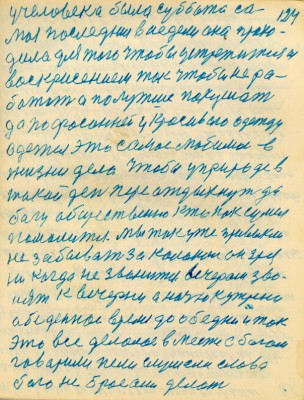 учеловека была суббота са-
мый последний внедели она прохо-
дила для того чтобы устретится и
воскрисением так чтобы не ра-
ботат а полутше покушат
да пофасонней украсивою одежду
одется это самое любимое в
жизни дело чтобы уприходе в
такой ден пере отдыхнут да
богу общественно кто как сумел
помолится. мы так уже привыкли
не забыват за колокол он зря
ни когда не звонитсн вечером зво-
нят к вечерни а на то кутрени
а беденное время до обедни и так
это все делалос в месте с богом
говорили пели слушели слова
бога не бросали делат
124